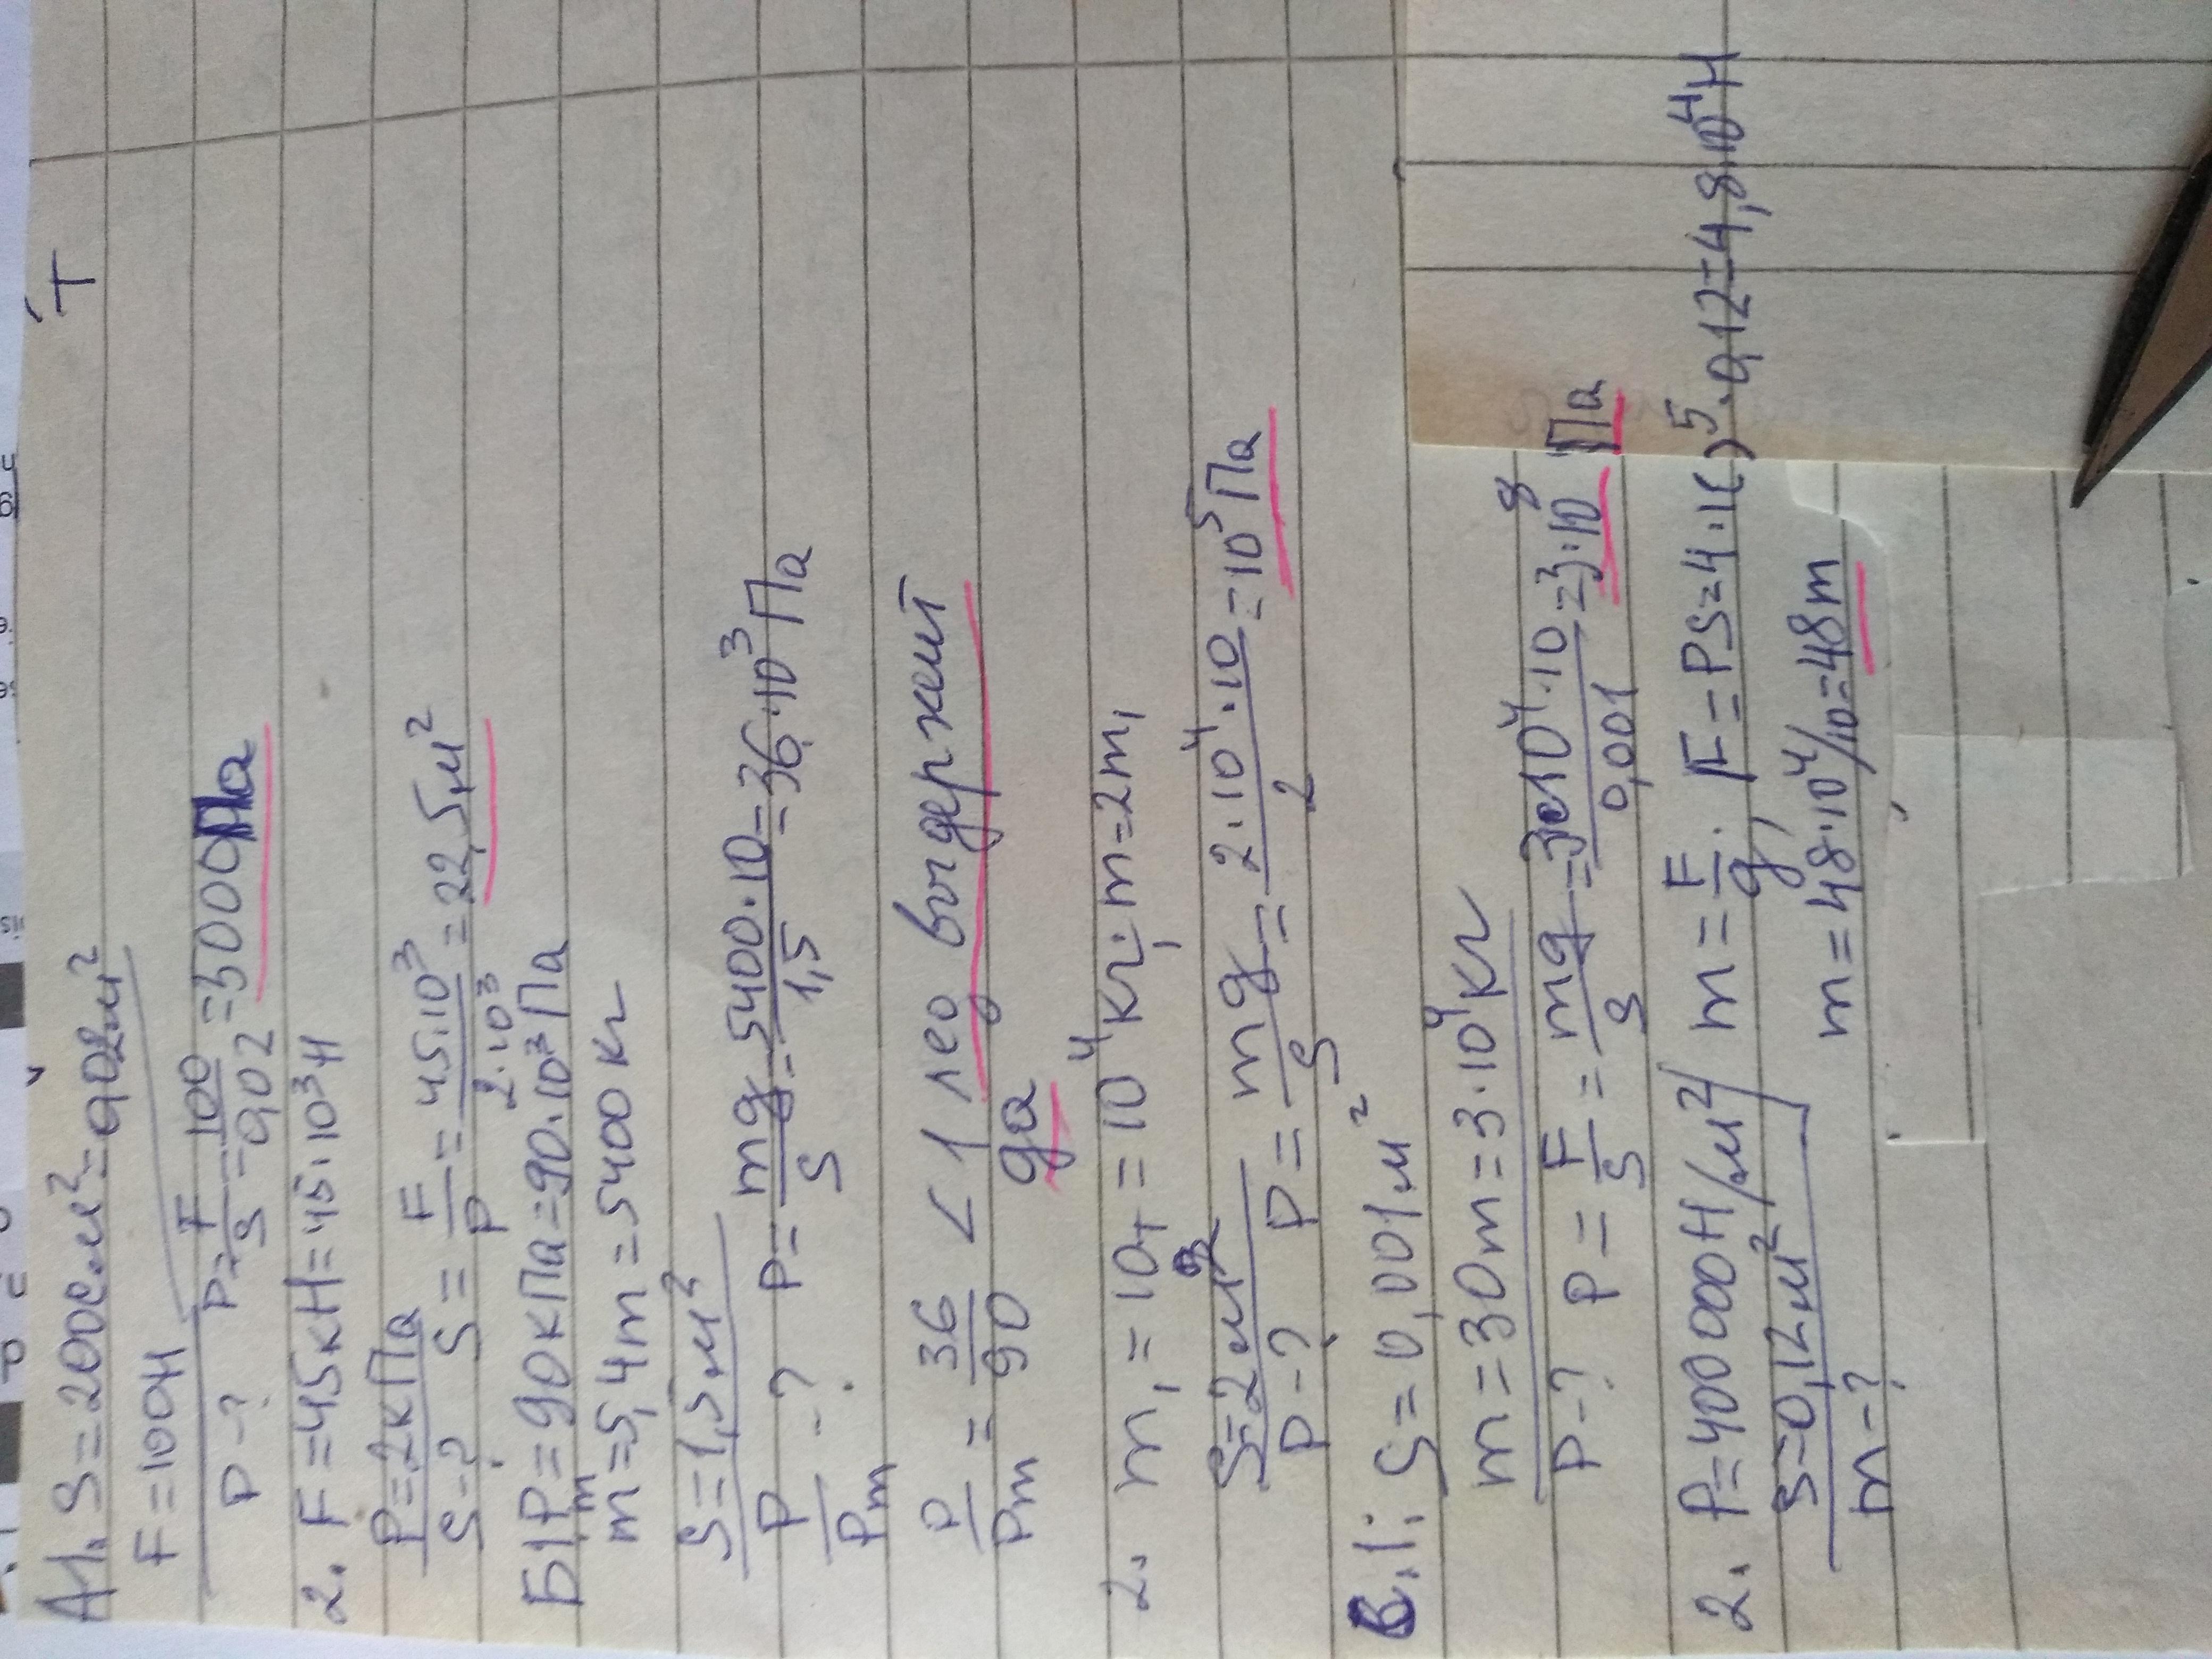 Т
А1. S=200см²=0,02м²
F=100Н
P-? P=F/S=100/0,02=5000Па
2. F=45кН=45·10³Н
P=2кПа
S-? S=F/P=45·10³/2·10³=22,5м²
Б1 Pm=90кПа=90·10³Па
m=5,4т=5400кг
S=1,5м²
P/Pm-? P=mg/S=5400·10/1,5=36·10³Па
P/Pm=36/90<1 лед выдержит
да
2. m₁=10т=10⁴кг; m=2m₁
S=2м²
P-? P=mg/S=2·10⁴·10/2=10⁵Па
В.1: S=0,001м²
m=30т=3·10⁴кг
P-? P=F/S=mg/S=3·10⁴·10/0,001=3·10⁸Па
2. P=400000Н/м² m=F/g; F=PS=4·10⁵·0,12=4,8·10⁴Н
S=0,12м²
m-? m=48·10⁴/10=48т